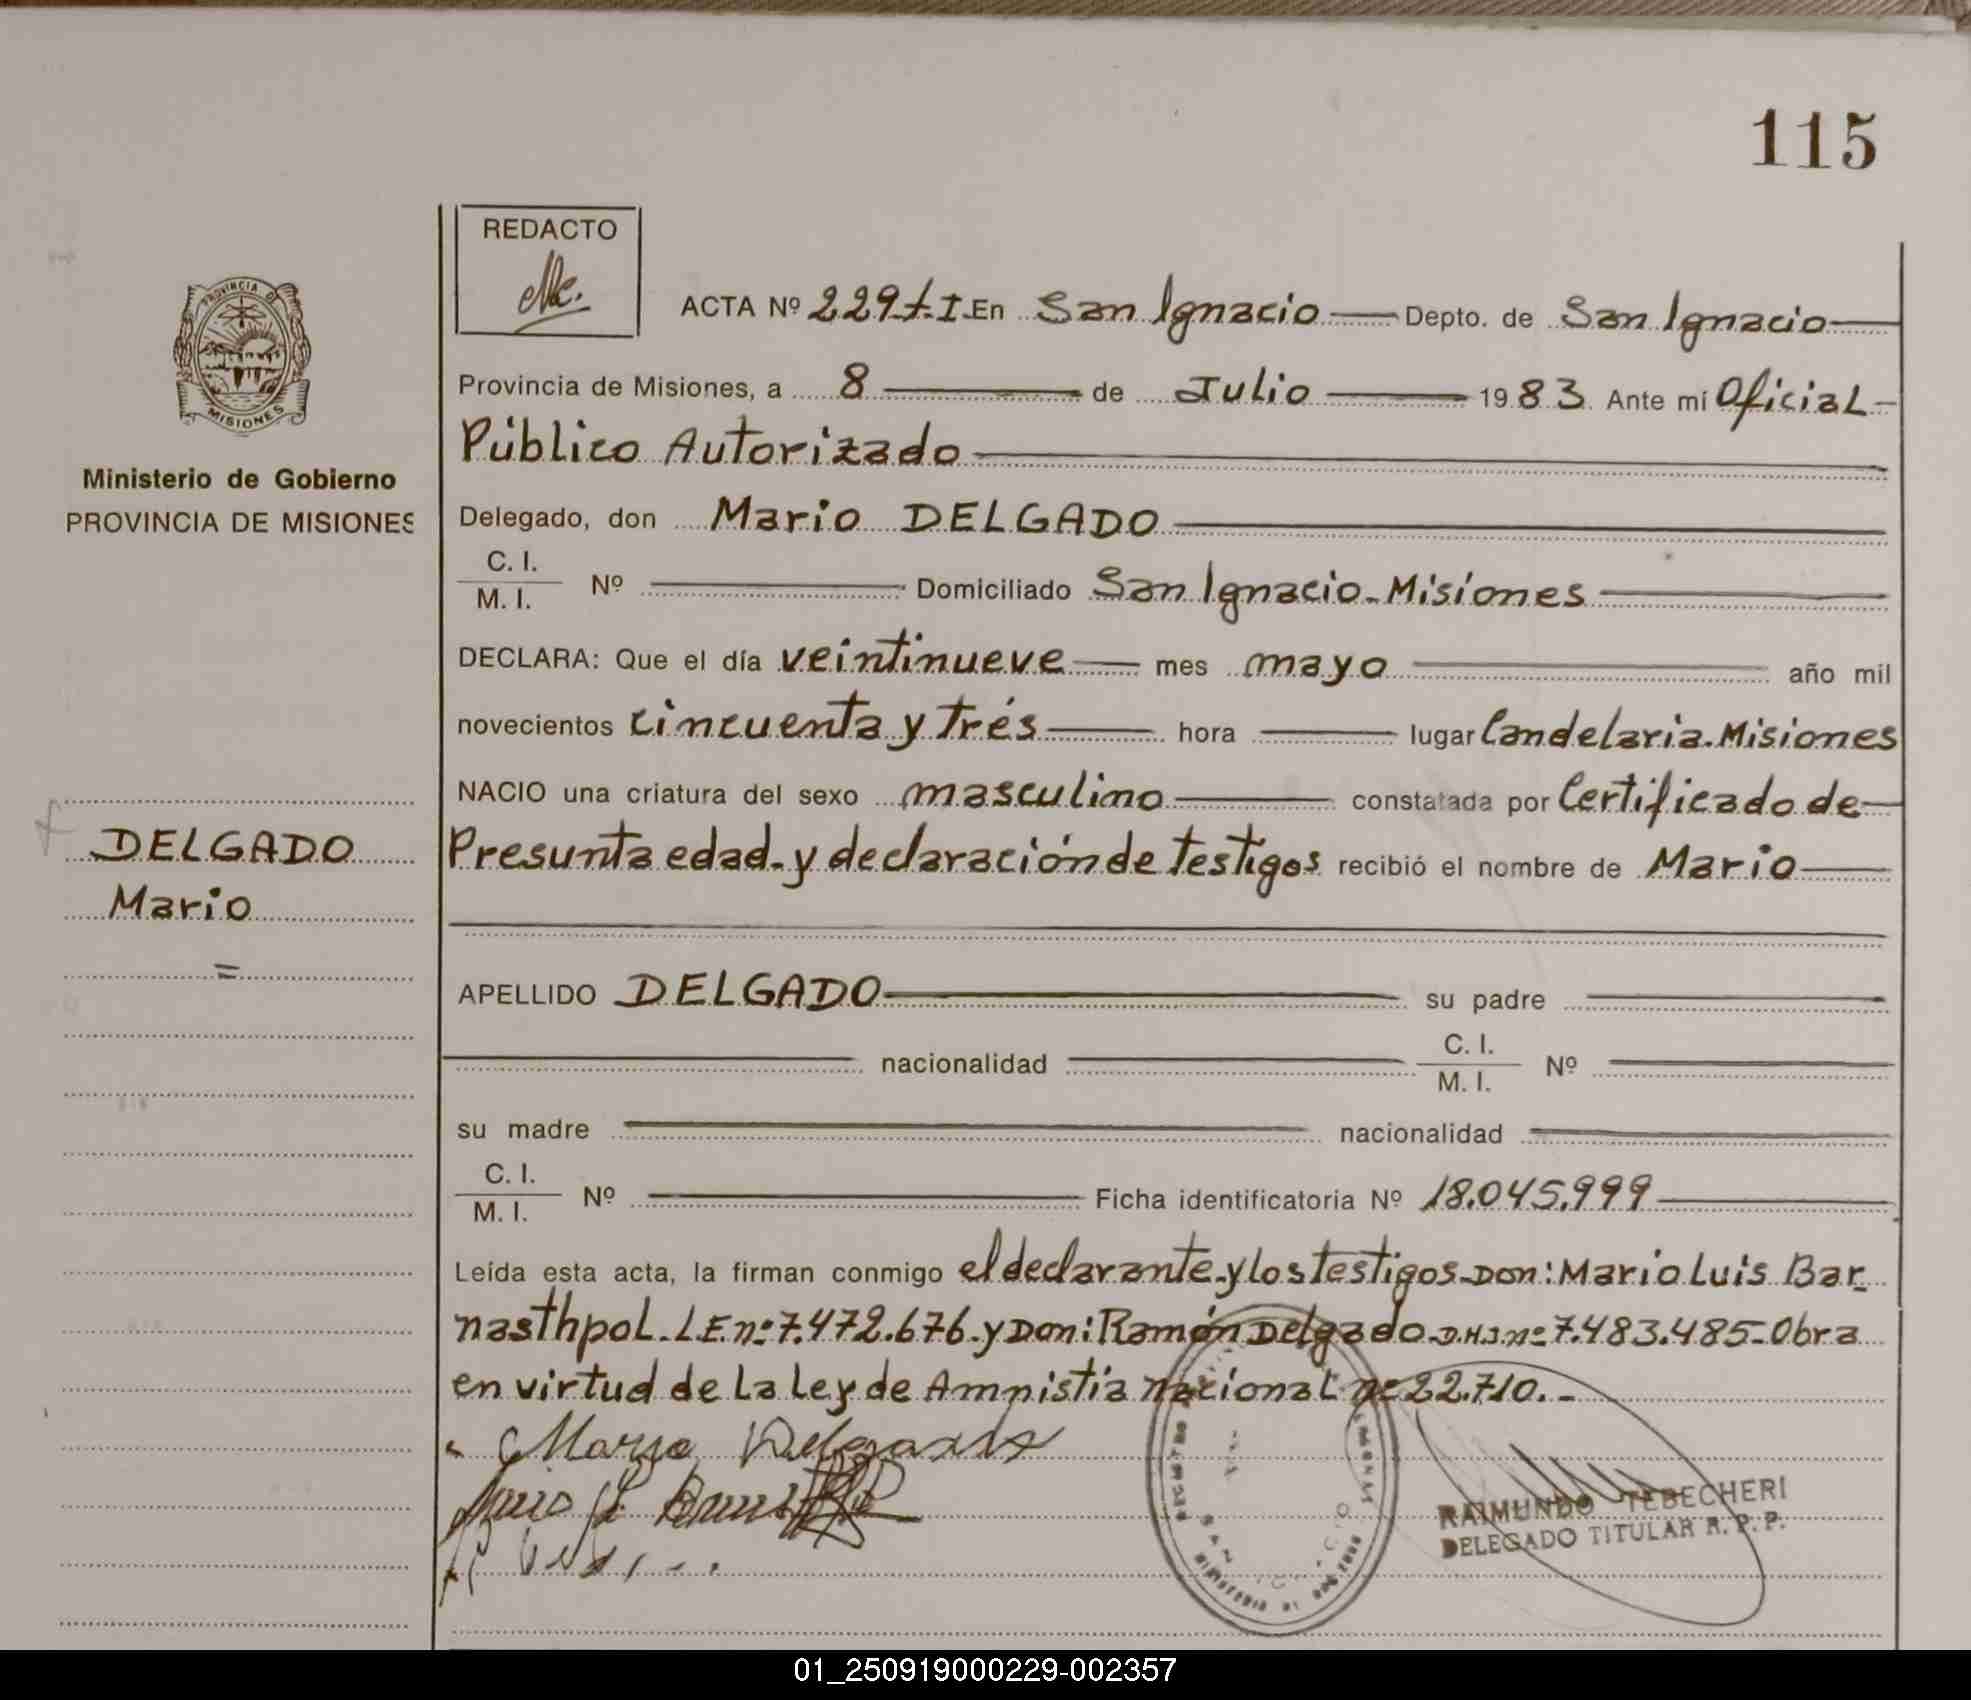 115
REDACTO
PROVINCIA DE
MISIONES
Ministerio de Gobierno
PROVINCIA DE MISIONES
DELGADO
Mario
=
ACTA Nº 229 t. I. En San Ignacio Depto. de San Ignacio
Provincia de Misiones, a 8 de Julio 1983. Ante mí Oficial
Público Autorizado
Delegado, don Mario DELGADO
C. I.
M. I. Nº Domiciliado San Ignacio - Misiones
DECLARA: Que el día veintinueve mes mayo año mil
novecientos cincuenta y trés hora lugar Candelaria. Misiones
NACIO una criatura del sexo masculino constatada por Certificado de
Presunta edad - y declaración de testigos recibió el nombre de Mario
APELLIDO DELGADO su padre
nacionalidad C. I.
M. I. Nº
su madre nacionalidad
C. I.
M. I. Nº Ficha identificatoria Nº 18.045.999
Leída esta acta, la firman conmigo el declarante - y los testigos - Don: Mario Luis Bar
nasthpol. L.E. nº 7.472.676 - y Don: Ramón Delgado - D.N.I. nº 7.483.485 - Obra
en virtud de la Ley de Amnistía nacional nº 22.710. -
Mario Delgado
SAN
RAIMUNDO TEBECHERI
DELEGADO TITULAR R. P. P.
01_250919000229-002357